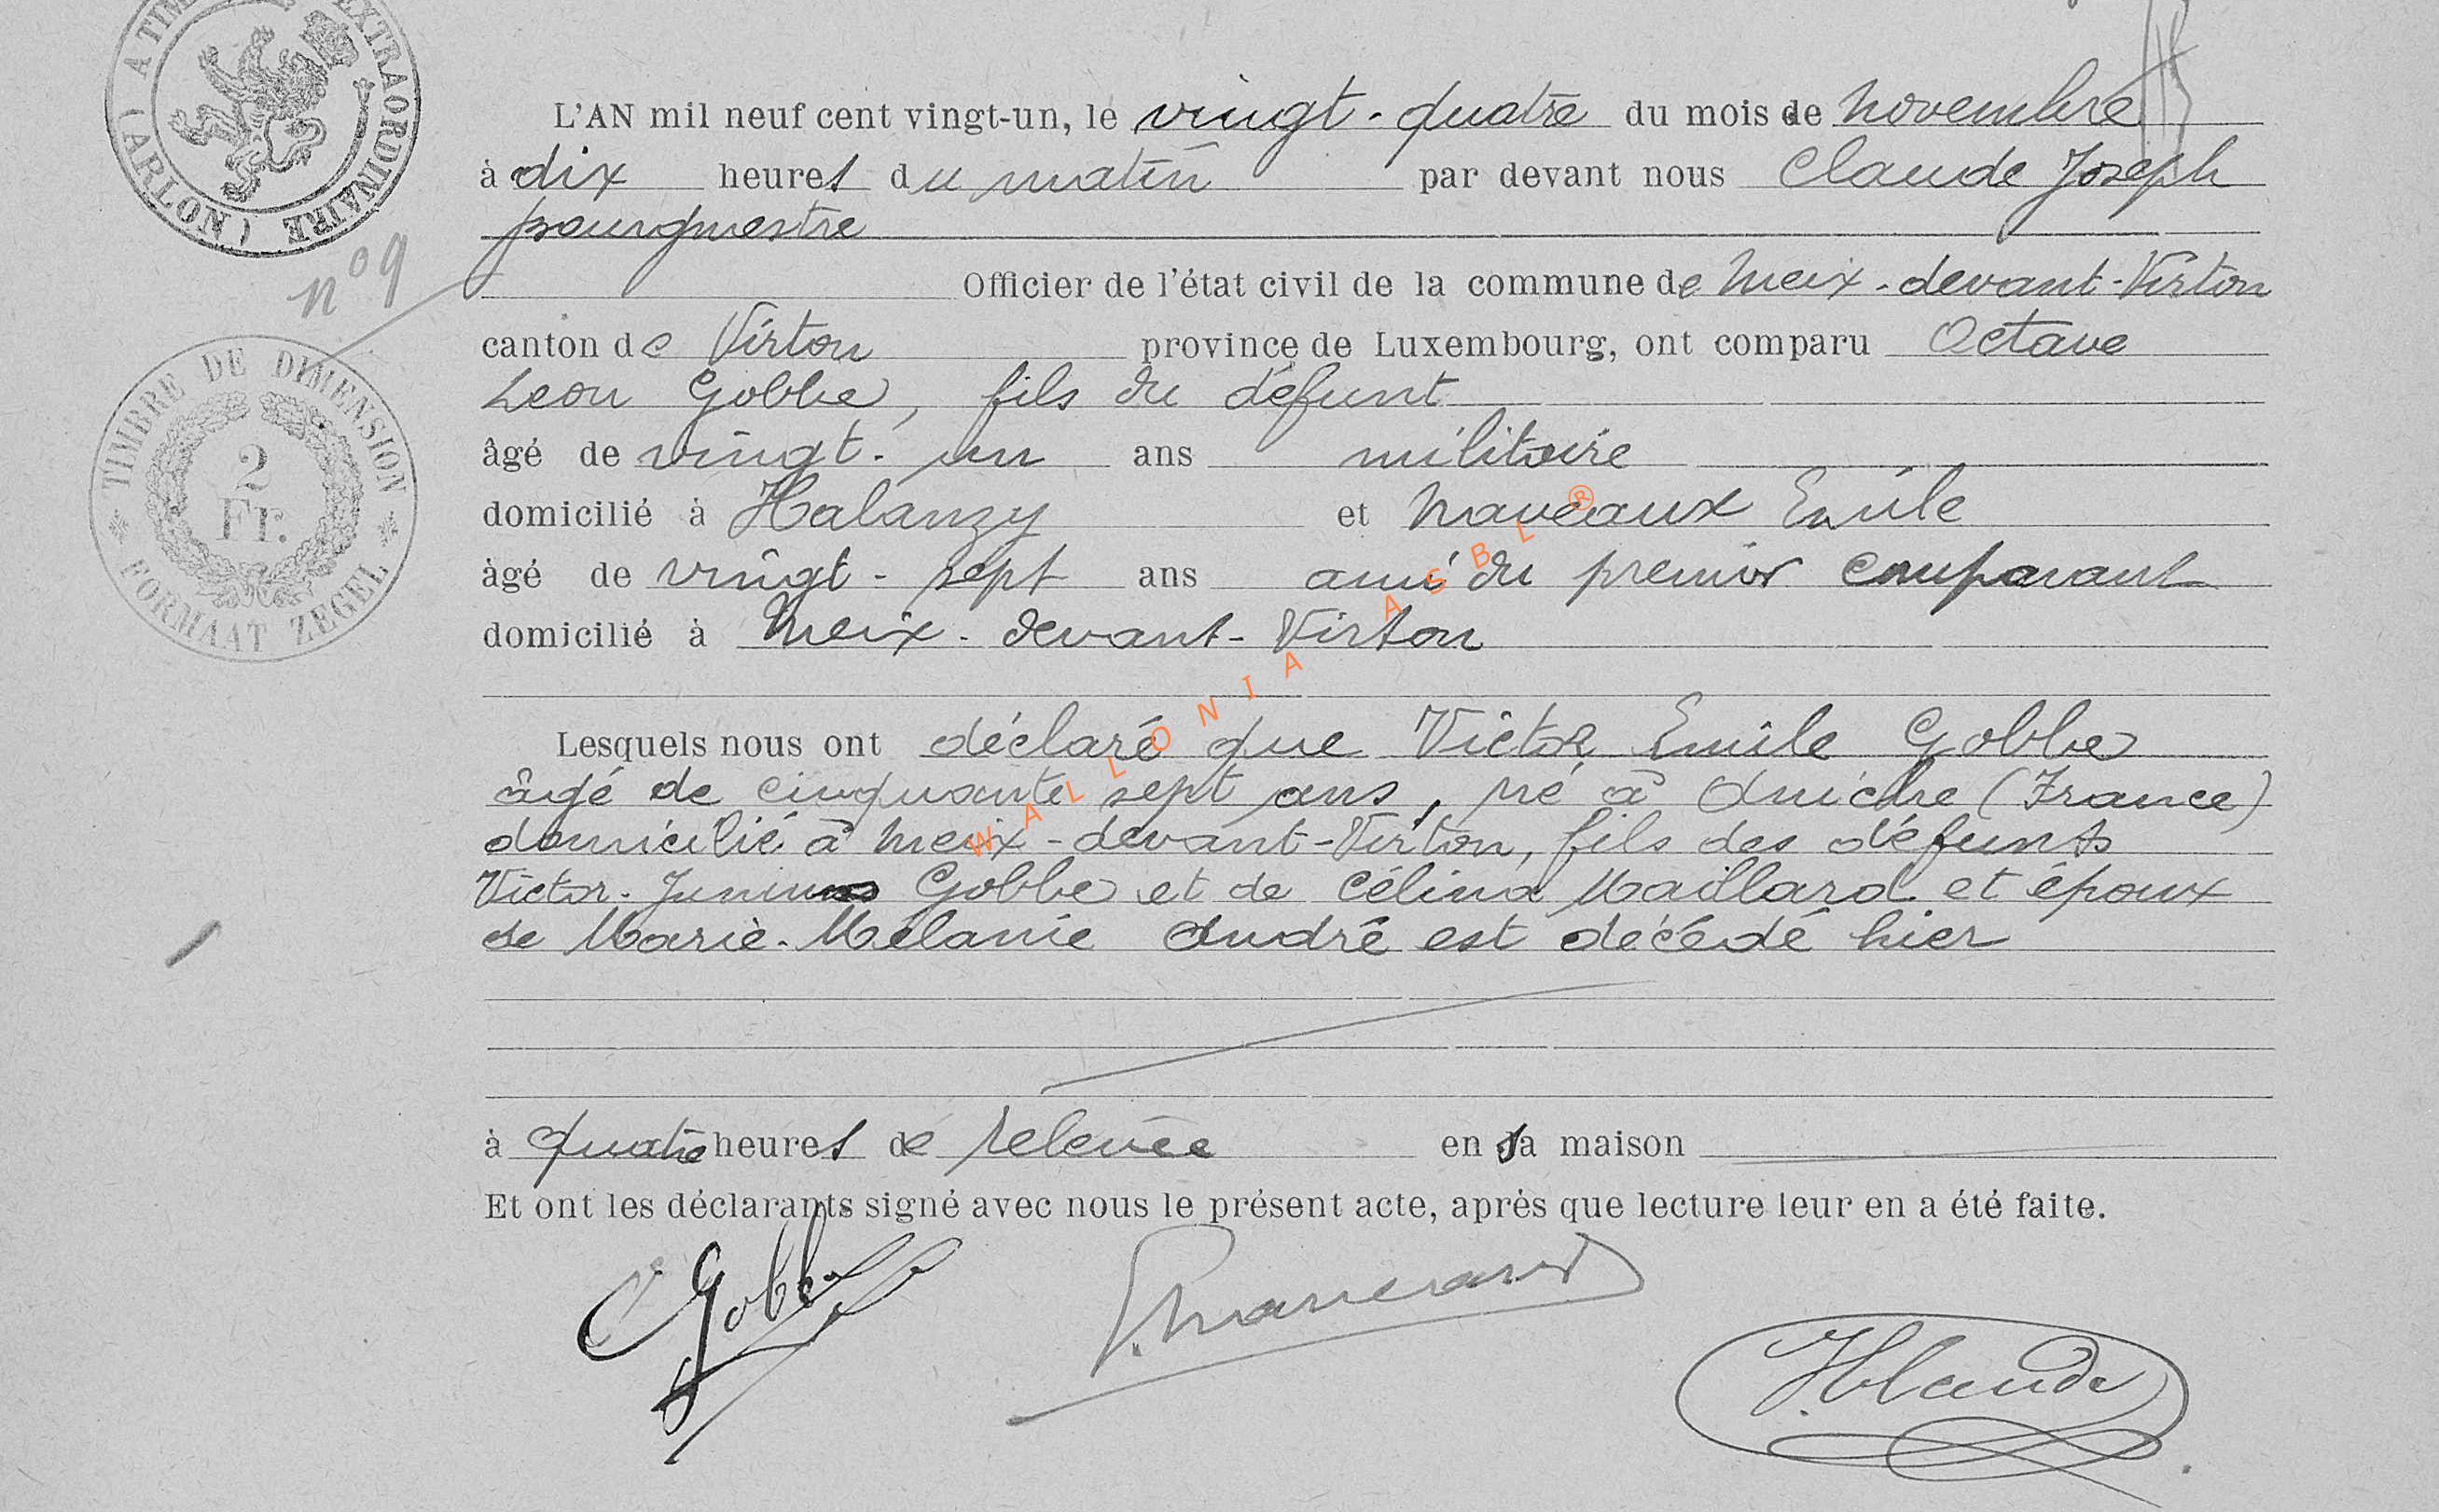 A TIMBRE EXTRAORDINAIRE (ARLON)
L'AN mil neuf cent vingt-un, le vingt-quatre du mois de novembre
à dix heures du matin par devant nous Claude Joseph
bourgmestre
n° 9
Officier de l'état civil de la commune de Meix-devant-Virton
canton de Virton province de Luxembourg, ont comparu Octave
Léon Gobbe, fils du défunt
TIMBRE DE DIMENSION
2 Fr.
FORMAAT ZEGEL
âgé de vingt-un ans militaire
domicilié à Halanzy et Naveaux Emile
âgé de vingt-sept ans ami du premier comparant
domicilié à Meix-devant-Virton
WALLONIA ASBL ®
Lesquels nous ont déclaré que Victor Emile Gobbe
âgé de cinquante sept ans, né à Aniche (France)
domicilié à Meix-devant-Virton, fils des défunts
Victor Gobbe et de Célina Maillard et époux
de Marie-Mélanie André est décédé hier
à quatre heures de relevée en sa maison
Et ont les déclarants signé avec nous le présent acte, après que lecture leur en a été faite.
O Gobbe
J. Claude